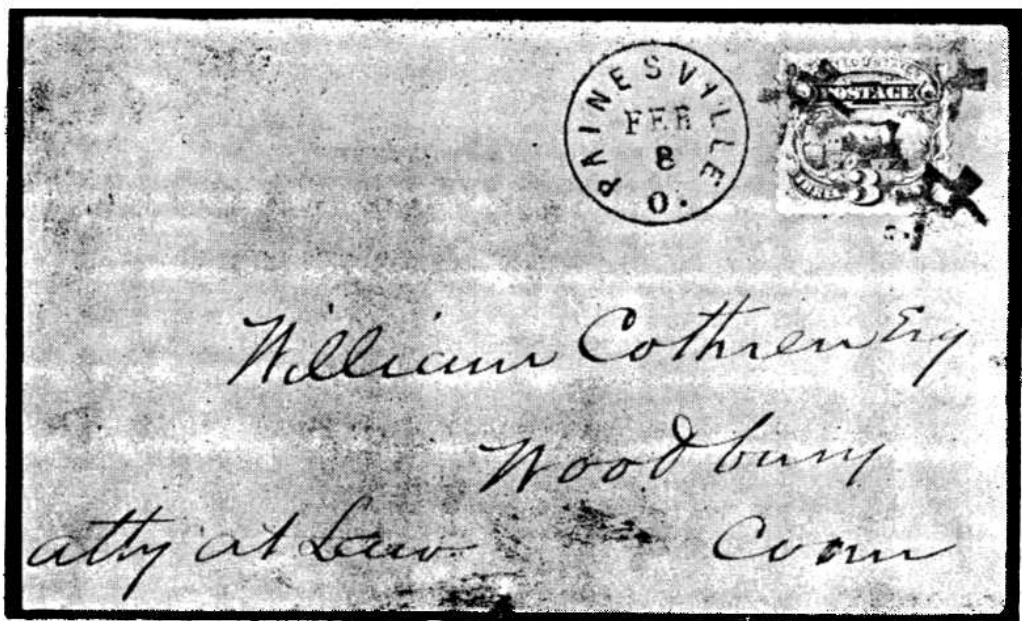 PAINESVILLE
FEB
8
O.
POSTAGE
3
William Cothren Esq
Woodbury
atty at Law Conn